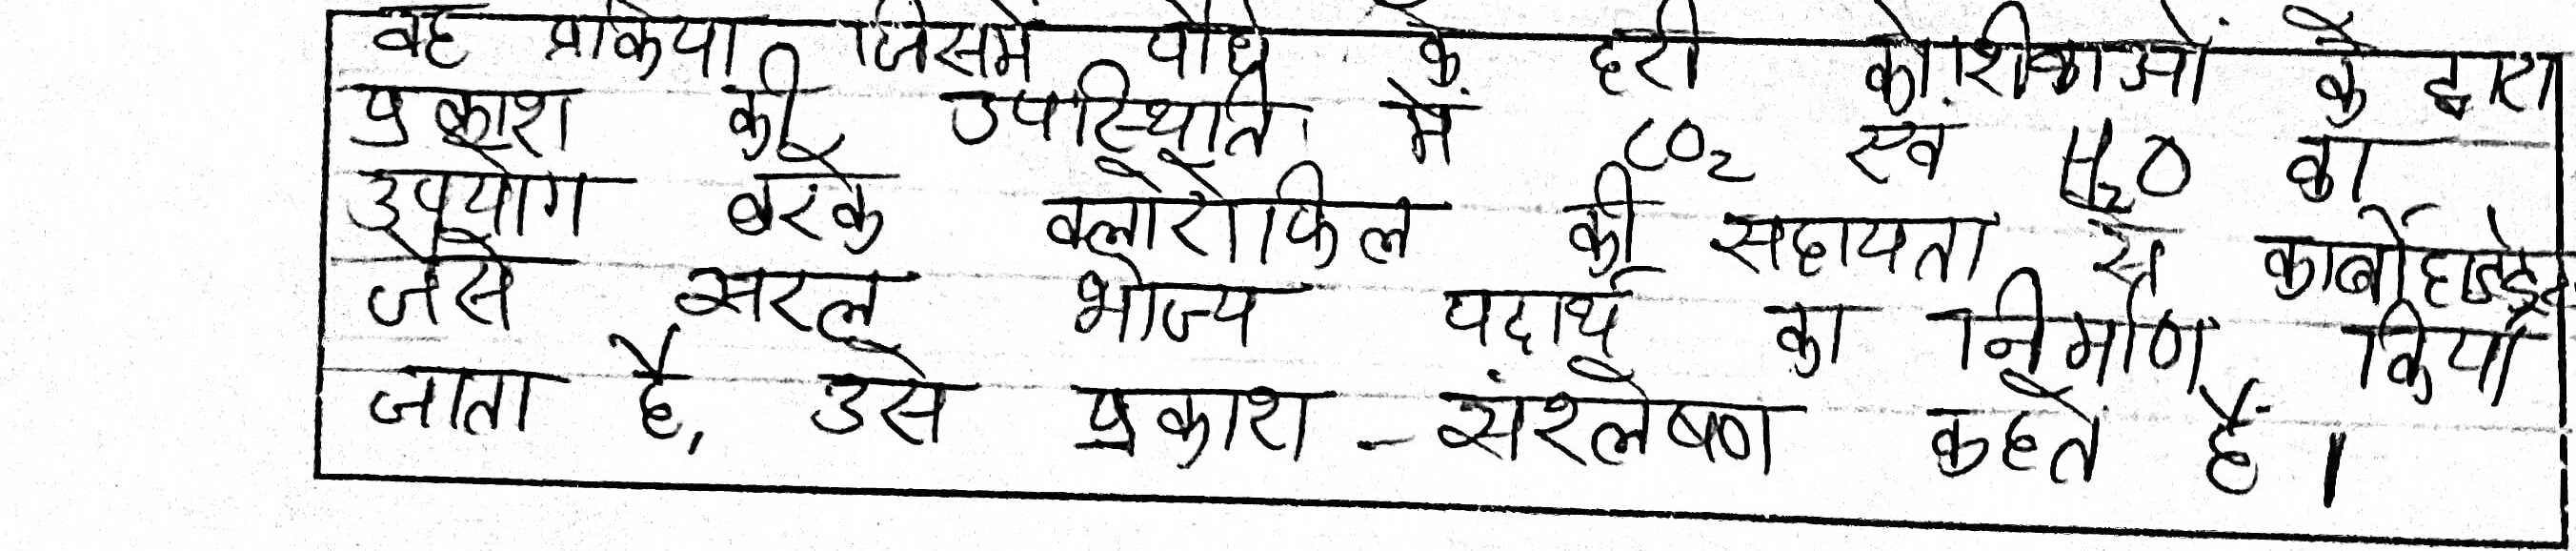 वह प्रक्रिया जिसमें पौधे के हरी कोशिकाओं के द्वारा
प्रकाश की उपस्थिति में CO₂ एवं H₂O का
उपयोग करके क्लोरोफिल की सहायता से कार्बोहाइड्रेट
जैसे सरल भोज्य पदार्थ का निर्माण किया
जाता है, उसे प्रकाश-संश्लेषण कहते हैं।